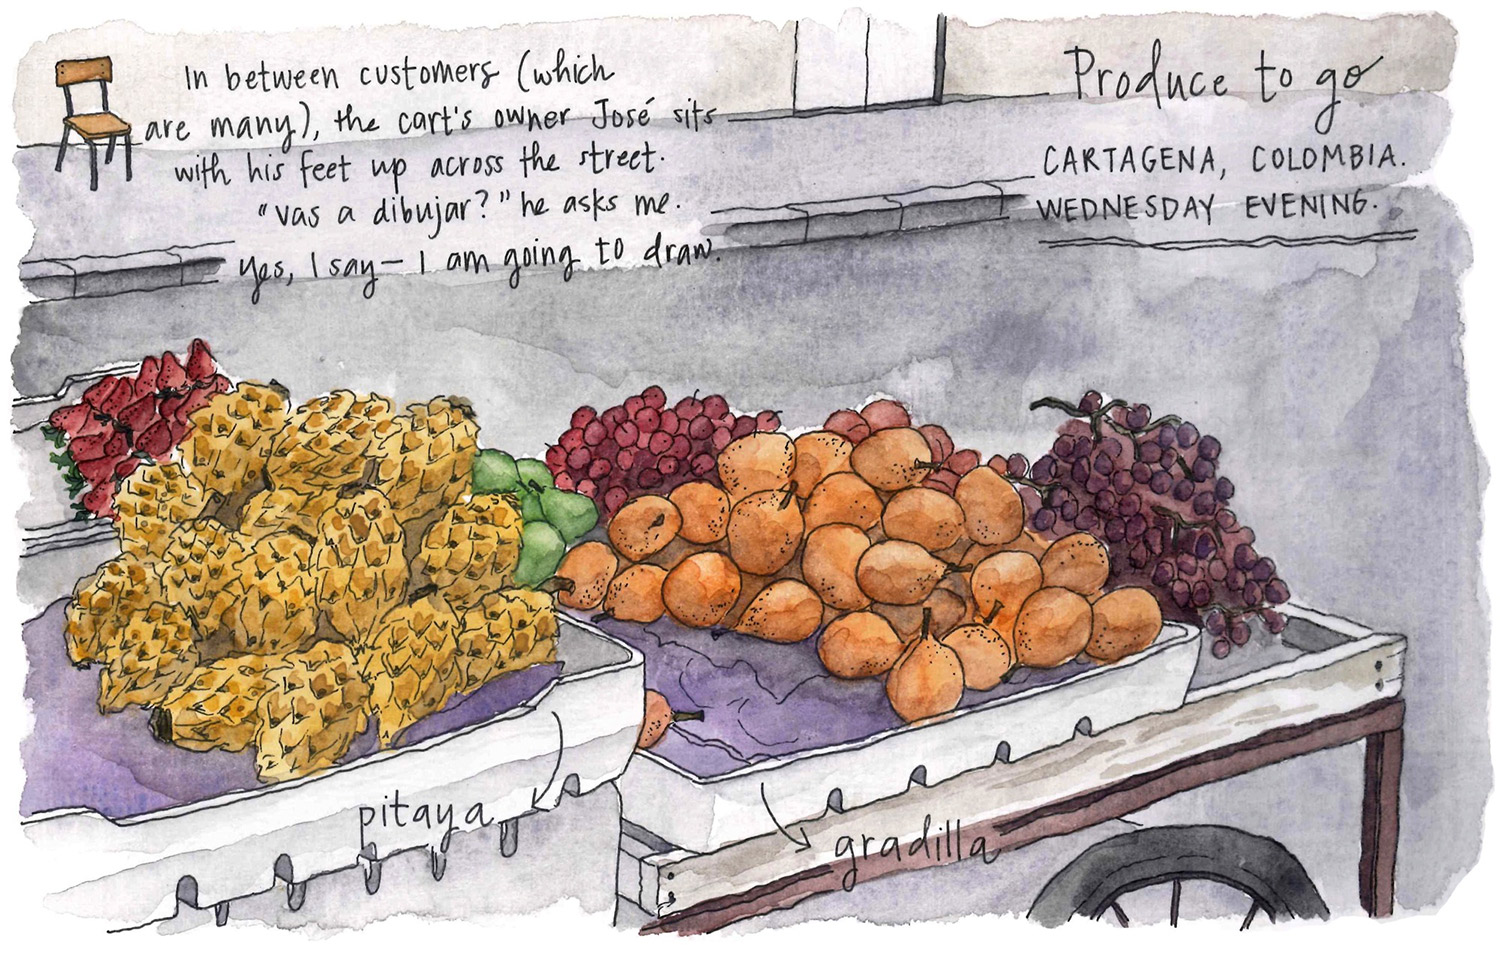 In between customers (which
are many), the cart's owner José sits
with his feet up across the street.
"vas a dibujar?" he asks me.
Yes, I say— I am going to draw.
Produce to go
CARTAGENA, COLOMBIA.
WEDNESDAY EVENING.
pitaya
gradilla